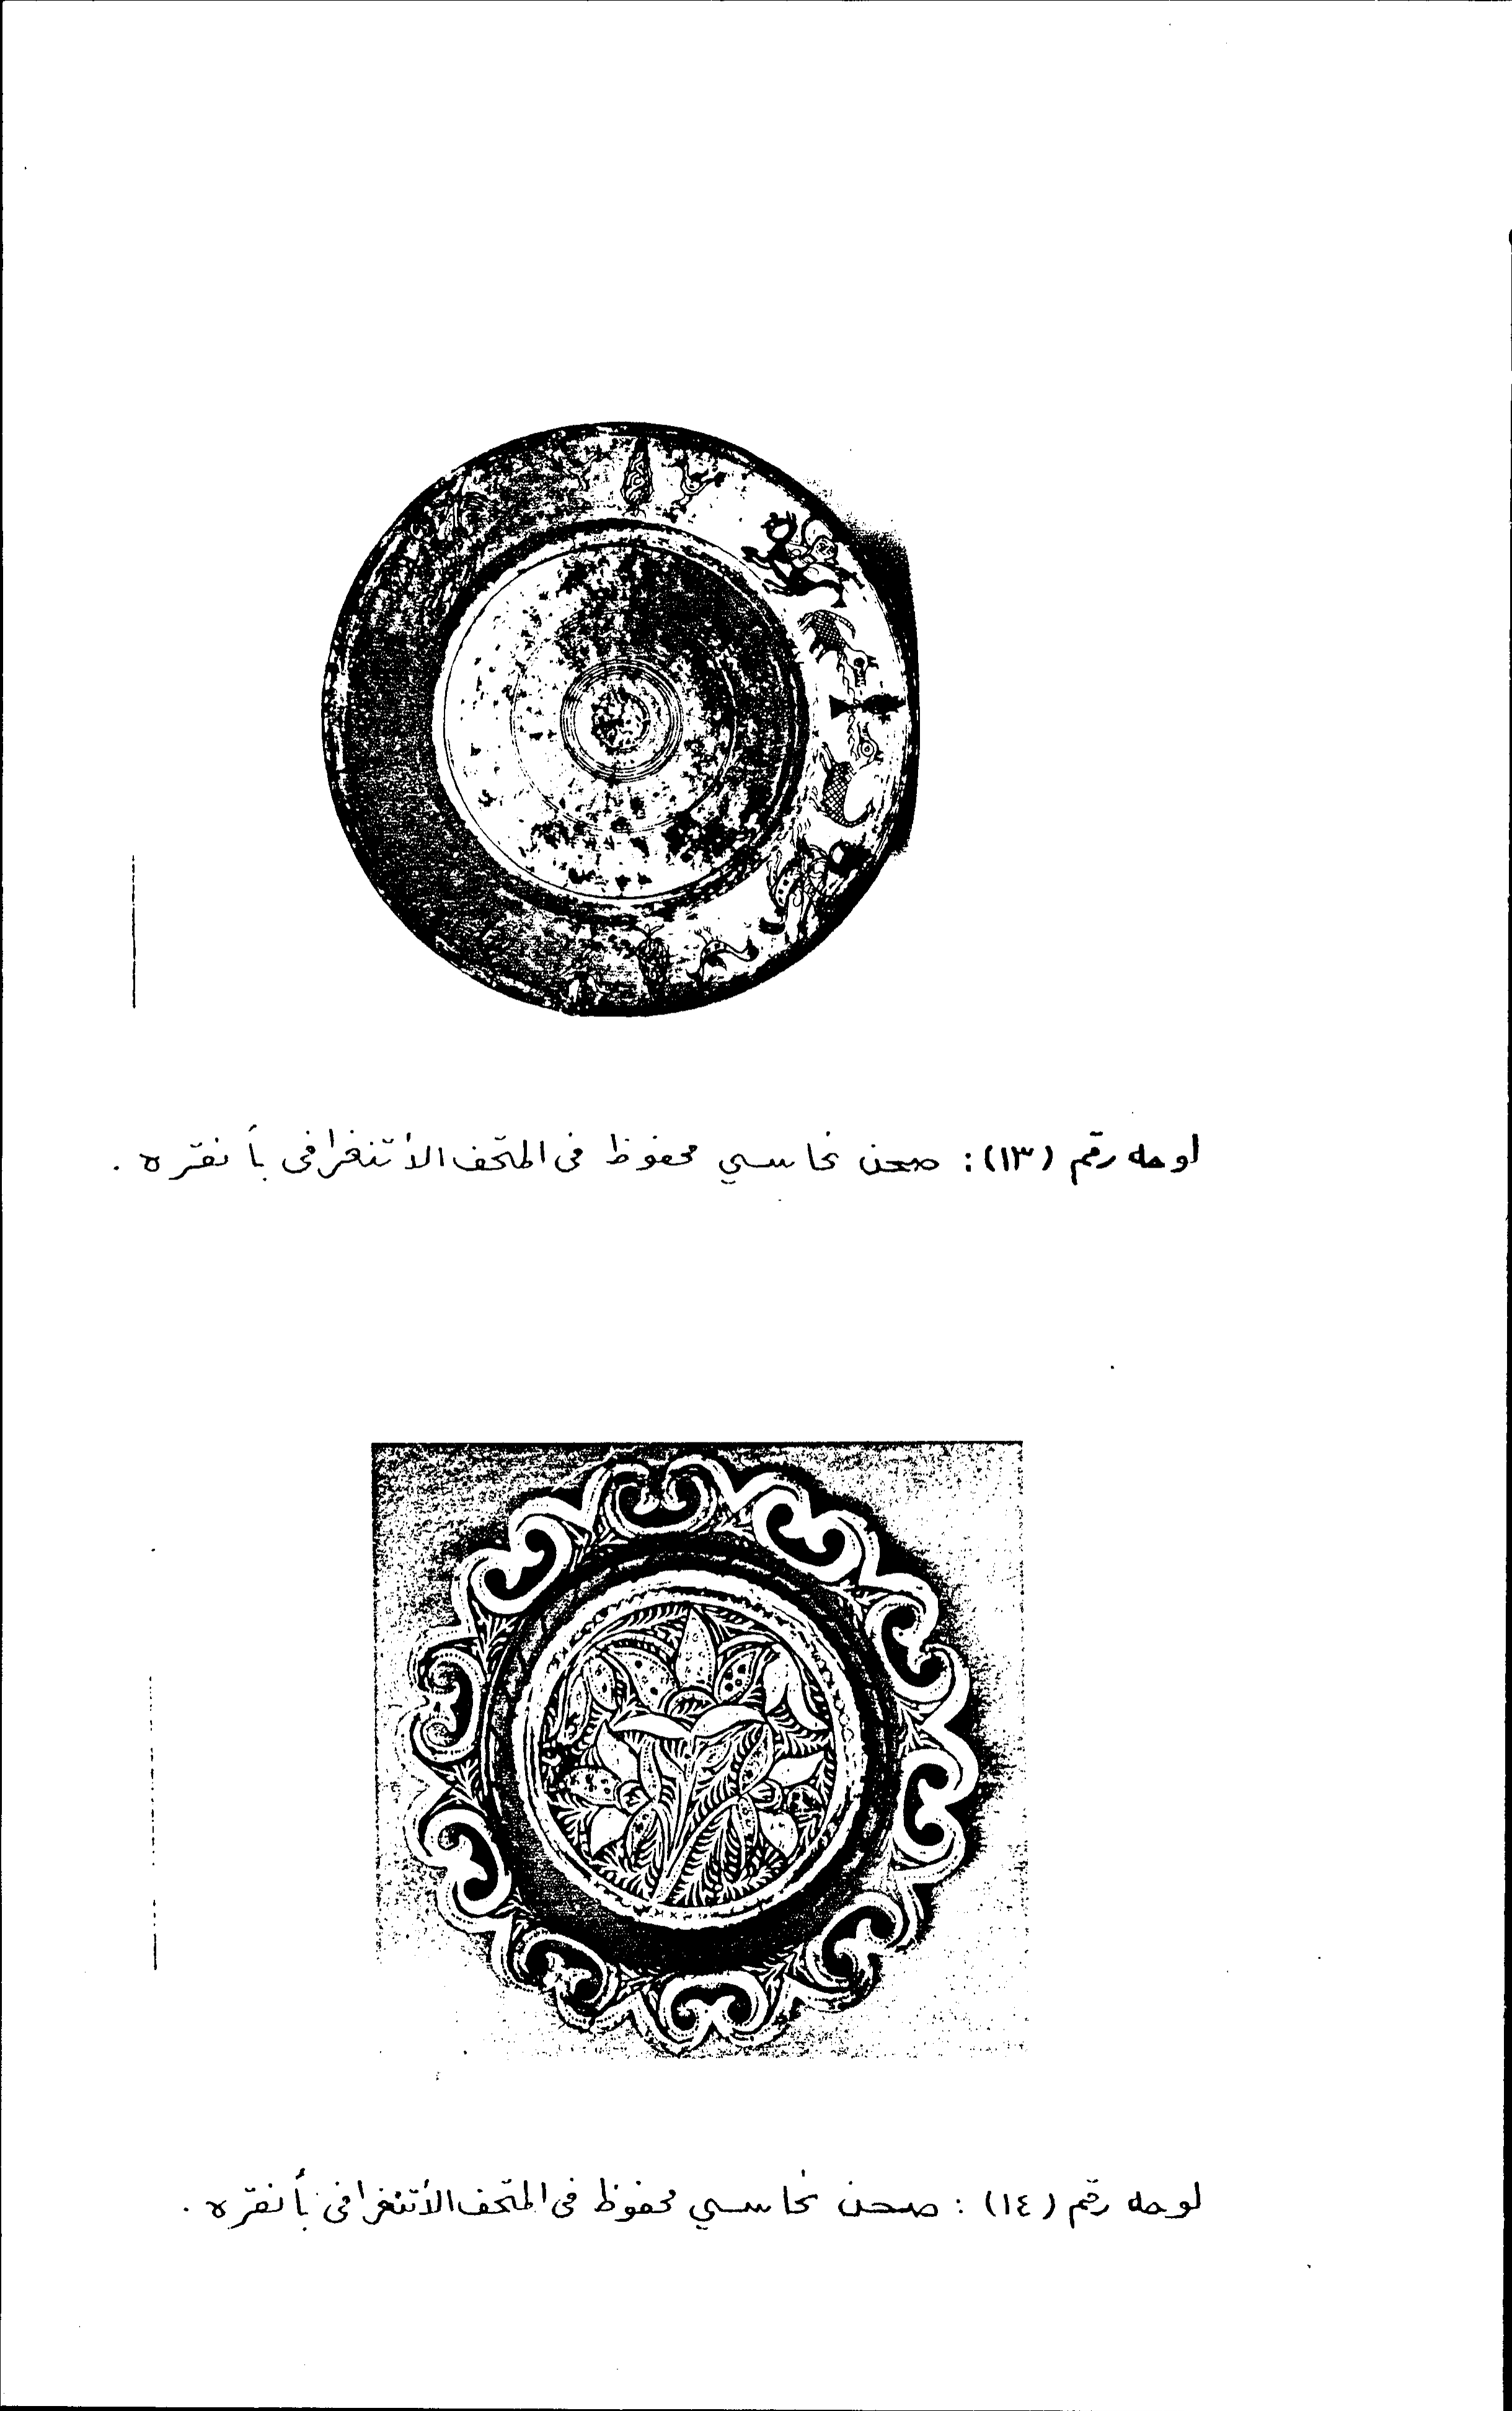 لوحه رقم (١٣): صحن نحاسي محفوظ فى المتحف الأتنغرافى بأنقره .
لوحه رقم (١٤) : صحن نحاسي محفوظ فى المتحف الأتنغرافى بأنقره .